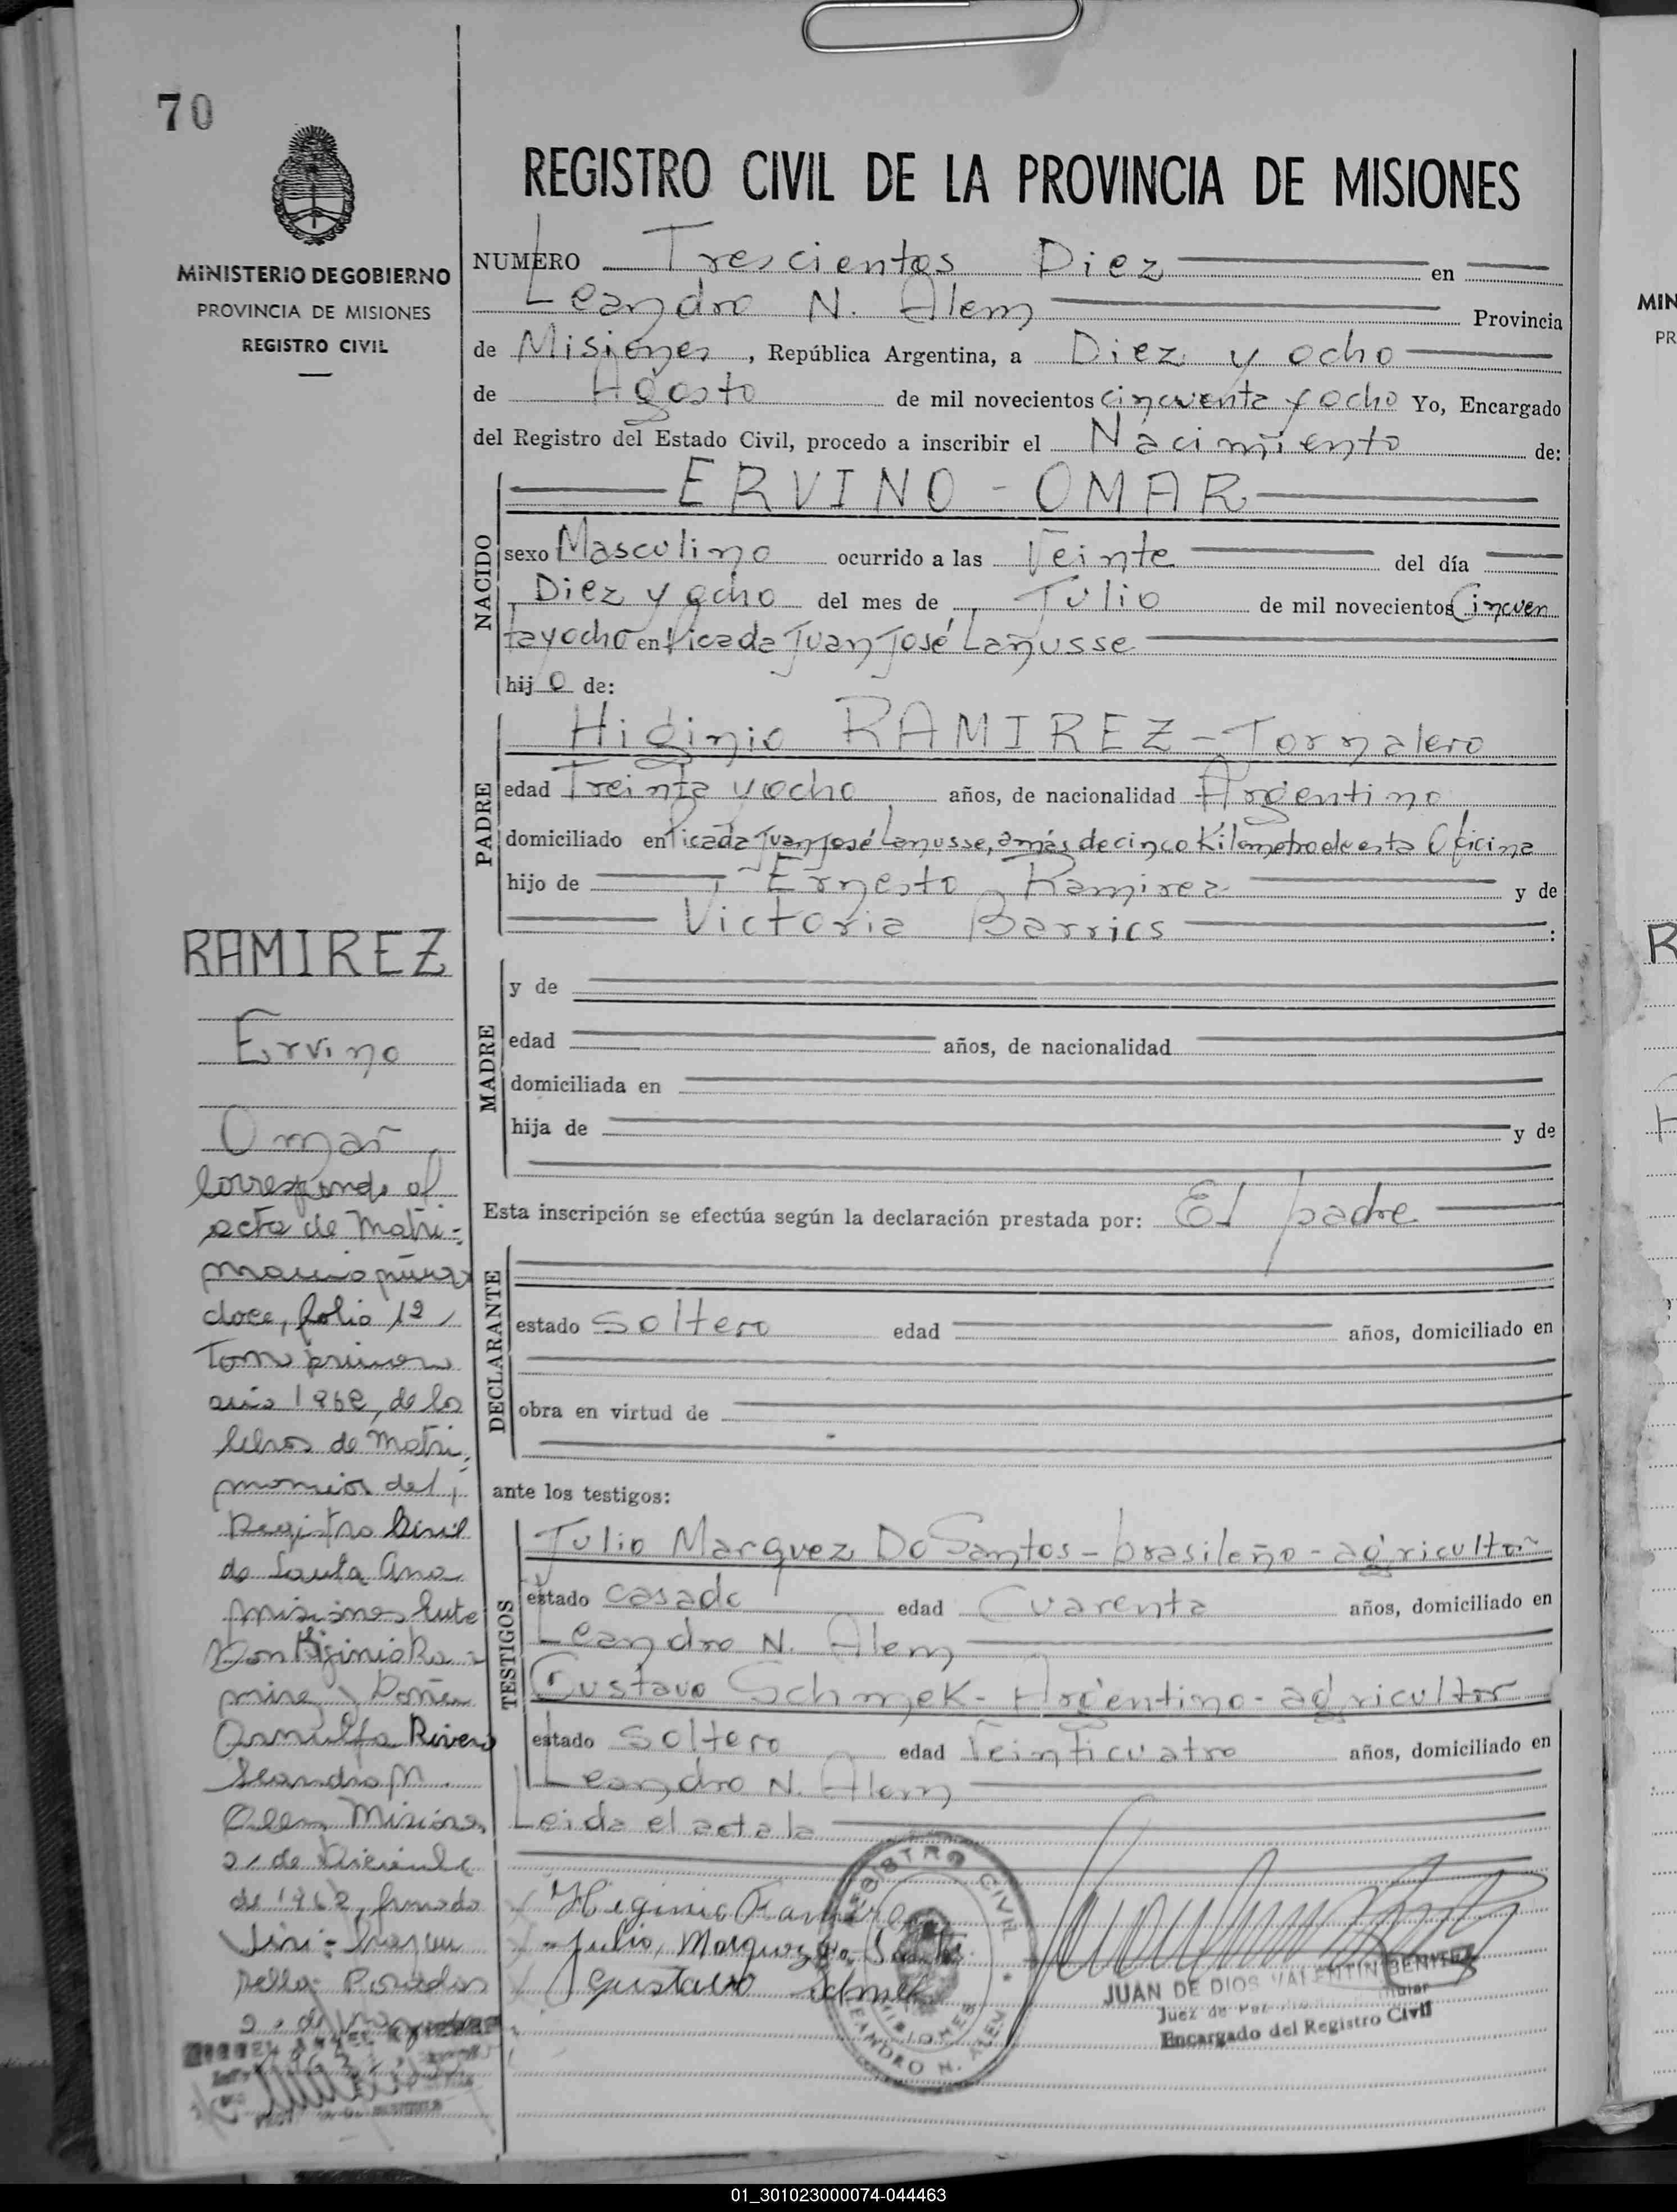 70
MINISTERIO DE GOBIERNO
PROVINCIA DE MISIONES
REGISTRO CIVIL
REGISTRO CIVIL DE LA PROVINCIA DE MISIONES
NUMERO Trescientos Diez en
Leandro N. Alem Provincia
de Misiones, República Argentina, a Diez y ocho
de Agosto de mil novecientos cincuenta y ocho Yo, Encargado
del Registro del Estado Civil, procedo a inscribir el Nacimiento de:
NACIDO
ERVINO - OMAR
sexo Masculino ocurrido a las Veinte del día
Diez y ocho del mes de Julio de mil novecientos Cincuen
ta y ocho en Picada Juan José Lanusse
hijo de:
PADRE
Higinio RAMIREZ - Jornalero
edad Treinta y ocho años, de nacionalidad Argentino
domiciliado en Picada Juan José Lanusse, a más de cinco Kilometro de esta Oficina
hijo de Ernesto Ramirez y de
Victoria Barrios :
MADRE
y de
edad años, de nacionalidad
domiciliada en
hija de y de
Esta inscripción se efectúa según la declaración prestada por: El padre
DECLARANTE
estado Soltero edad años, domiciliado en
obra en virtud de
ante los testigos:
TESTIGOS
Julio Marquez Do Santos - brasileño - agricultor
estado casado edad Cuarenta años, domiciliado en
Leandro N. Alem
Gustavo Schmek - Argentino - agricultor
estado Soltero edad Veinticuatro años, domiciliado en
Leandro N. Alem
Leida el acta la
Higinio Ramirez
Julio, Marquez Do Santos
Gustavo Schmek
REGISTRO CIVIL
MISIONES
LEANDRO N. ALEM
JUAN DE DIOS VALENTIN BENITEZ
Juez de Paz Titular
Encargado del Registro Civil
RAMIREZ
Ervino
Omar
Corresponde al
acta de Matri-
monio número
doce, folio 12,
Tomo primero
año 1962, de los
libros de Matri-
monios del
Registro Civil
de Santa Ana
Misiones entre
Don Higinio Ra-
mirez y Doña
Arnulfa Rivero
Leandro N.
Alem, Misiones,
de Diciembre
de 1962, firmado
Posadas
MIGUEL ANGEL
01_301023000074-044463